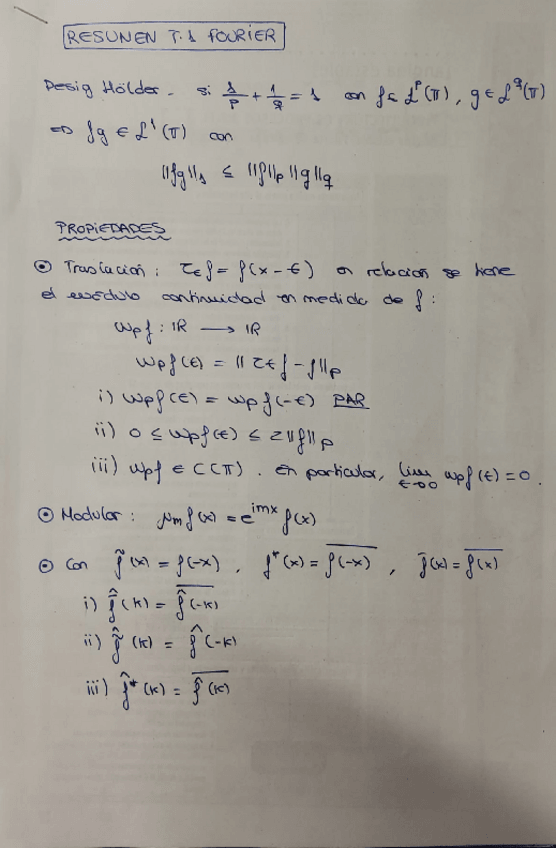 RESUMEN T.1 FOURIER
Desig Hölder. si 1/p + 1/q = 1 con f ∈ L^p(π), g ∈ L^q(π)
⇒ fg ∈ L^1(π) con
||fg||_1 ≤ ||f||_p ||g||_q
PROPIEDADES
⊙ Traslación: τ_ε f = f(x-ε) en relación se tiene
el módulo continuidad en medida de f:
ω_p f : ℝ → ℝ
ω_p f(ε) = ||τ_ε f - f||_p
i) ω_p f(ε) = ω_p f(-ε) PAR
ii) 0 ≤ ω_p f(ε) ≤ 2||f||_p
iii) ω_p f ∈ C(π). En particular, lim_{ε→0} ω_p f(ε) = 0.
⊙ Modular: μ_m f(x) = e^{imx} f(x)
⊙ Con f̃(x) = f(-x), f*(x) = \overline{f(-x)}, f̄(x) = \overline{f(x)}
i) \hat{f̄}(k) = \overline{\hat{f}(-k)}
ii) \hat{f̃}(k) = \hat{f}(-k)
iii) \hat{f}*(k) = \overline{\hat{f}(k)}